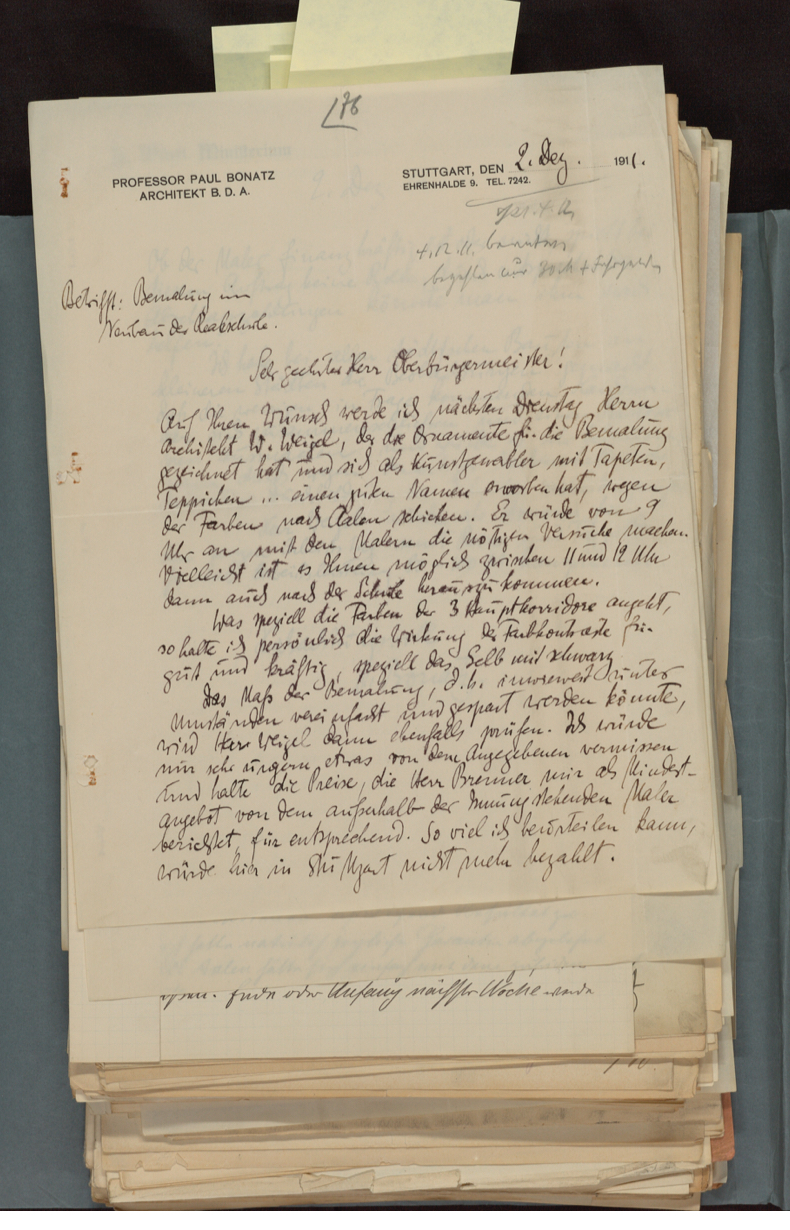 176
PROFESSOR PAUL BONATZ
ARCHITEKT B. D. A.
STUTTGART, DEN 2. Dez. 1911.
EHRENHALDE 9. TEL. 7242.
4.12.11.
Betrifft: Bemalung im
Neubau der Realschule.
Sehr geehrter Herr Oberbürgermeister!
Auf Ihren Wunsch werde ich nächsten Dienstag Herrn
Architekt W. Weigel, der die Ornamente für die Bemalung
gezeichnet hat und sich als Kunstgewerbler mit Tapeten,
Teppichen ... einen guten Namen erworben hat, wegen
der Farben nach Aalen schicken. Er würde von 9
Uhr an mit den Malern die nötigen Versuche machen.
Vielleicht ist es Ihnen möglich zwischen 11 und 12 Uhr
dann auch nach der Schule herauszukommen.
Was speziell die Farben der 3 Hauptkorridore angeht,
so halte ich persönlich die Wirkung der Farbkontraste für
gut und kräftig, speziell das Gelb mit schwarz.
Das Maß der Bemalung, d.h. inwieweit unter
Umständen vereinfacht und gespart werden könnte,
wird Herr Weigel dann ebenfalls prüfen. Ich würde
nur sehr ungern etwas von dem Angegebenen vermissen
und halte die Preise, die Herr Brenner mir als Mindest-
angebot von dem außerhalb der Innung stehenden Maler
berichtet, für entsprechend. So viel ich beurteilen kann,
würde hier in Stuttgart nicht mehr bezahlt.
Ende oder Anfang nächster Woche werde